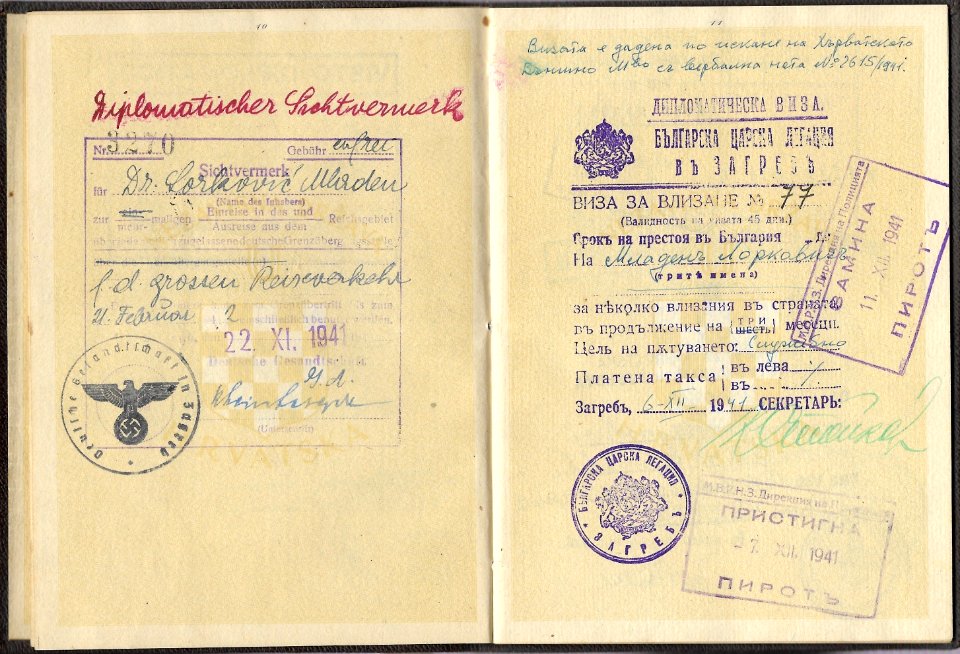 10
Diplomatischer Sichtvermerk
Nr. 3270 Gebühr
Sichtvermerk
für Dr. Lorković Mladen
(Name des Inhabers)
zur ein-maligen Einreise in das und Reichsgebiet
mehr- Ausreise aus dem
zugelassene deutsche Grenzübergangsstelle
f. d. grossen Reiseverkehr
21. Februar 2
22. XI. 1941
Deutsche Gesandtschaft
(Unterschrift)
Deutsche Gesandtschaft in Zagreb
11
Визата е дадена по искане на Хърватското
Външно М-во съ вербална нота № 2615/1941.
ДИПЛОМАТИЧЕСКА ВИЗА.
БЪЛГАРСКА ЦАРСКА ЛЕГАЦИЯ
ВЪ ЗАГРЕБЪ
ВИЗА ЗА ВЛИЗАНЕ № 77
(Валидность на визата 45 дни.)
Срокъ на престоя въ България
На Младенъ Лорковичъ
(трите имена)
за нѣколко влизания въ страната
въ продължение на ТРИ ШЕСТЬ месеци.
Цель на пѫтуването: Служебно
Платена такса въ лева
въ
Загребъ, 6-XII 1941 СЕКРЕТАРЬ:
БЪЛГАРСКА ЦАРСКА ЛЕГАЦИЯ
ЗАГРЕБЪ
М.В.Р.Н.З. Дирекция на Полицията
ЗАМИНА
11. XII. 1941
ПИРОТЪ
М.В.Р.Н.З. Дирекция на
ПРИСТИГНА
-7. XII. 1941
ПИРОТЪ